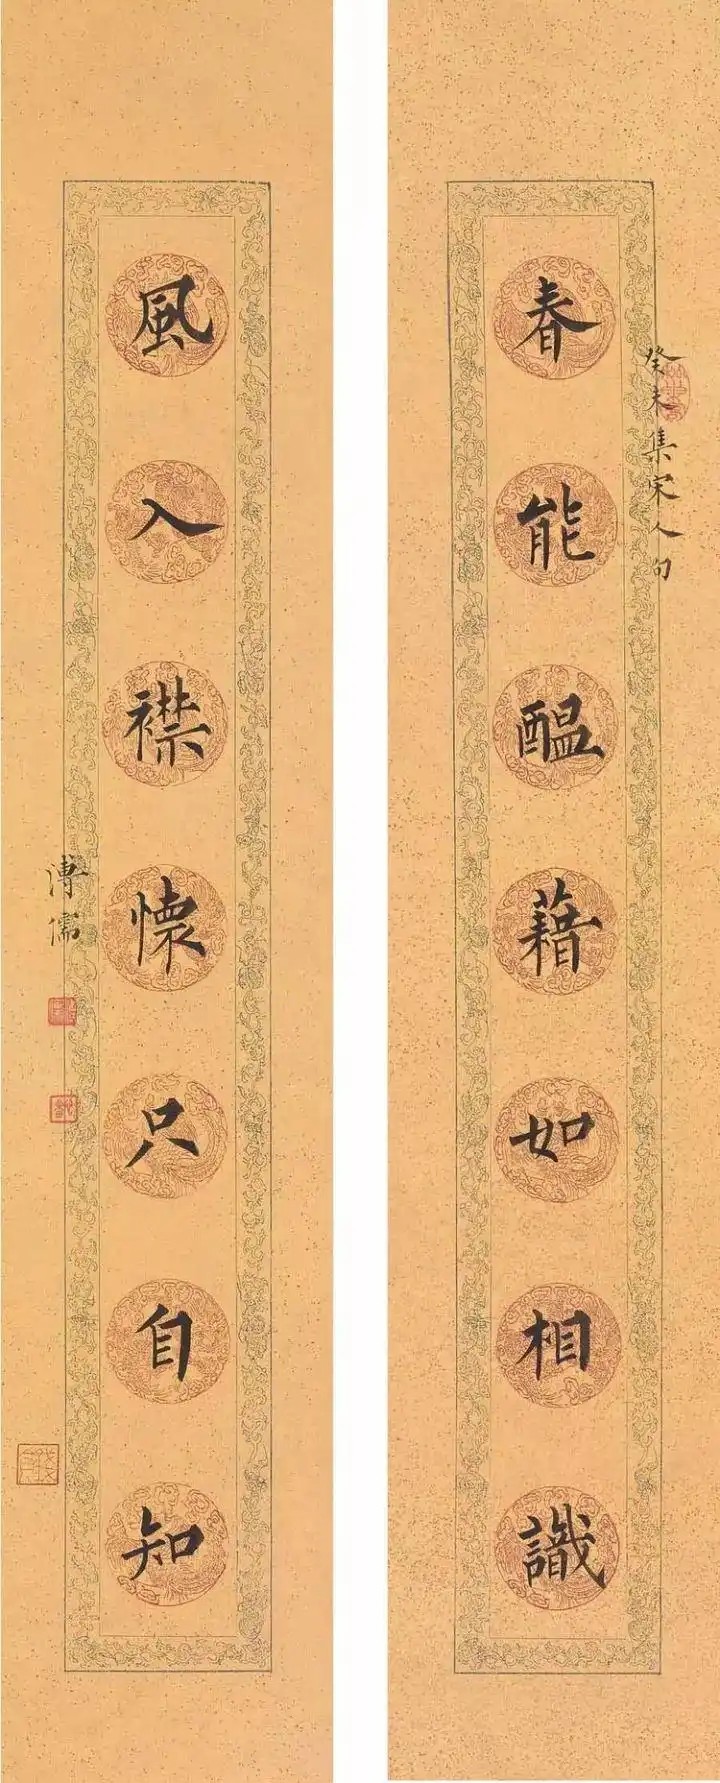 癸未集宋人句
春能醖藉如相識
風入襟懷只自知
溥儒